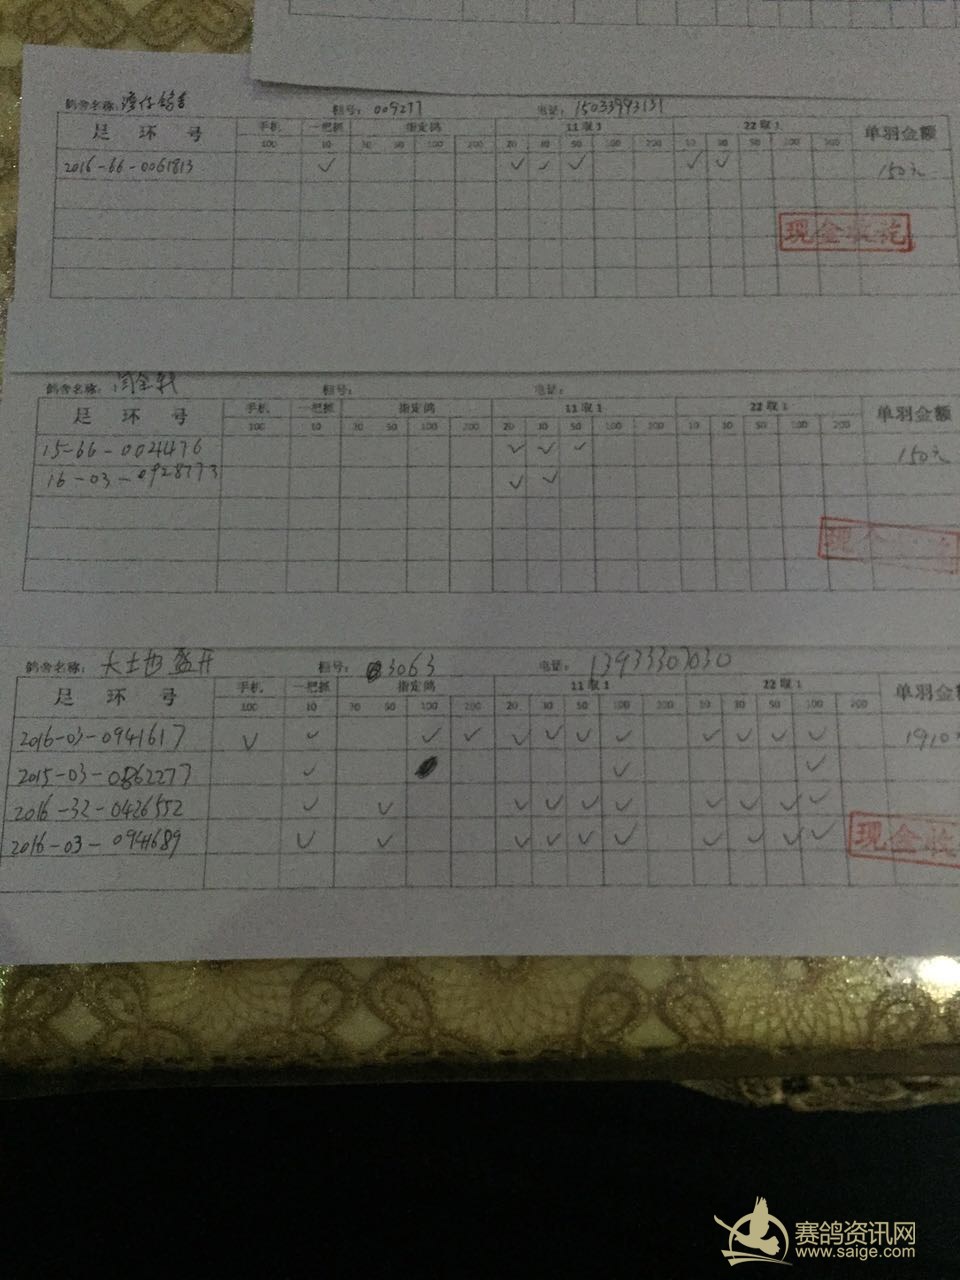 鸽舍名称： 棚号：009277 电话：15033993131
足 环 号 手机 一把抓 指定鸽 11取1 22取1 单羽金额
100 10 30 50 100 200 20 30 50 100 200 10 30 50 100 200
2016-66-0061813 ✓ ✓ ✓ ✓ ✓ ✓ 150元
现金收讫
鸽舍名称： 棚号： 电话：
足 环 号 手机 一把抓 指定鸽 11取1 22取1 单羽金额
100 10 30 50 100 200 20 30 50 100 200 10 30 50 100 200
15-66-0024476 ✓ ✓ ✓ 150元
16-03-0928773 ✓ ✓
现金
鸽舍名称：大土地盛开 棚号：3063 电话：13933307030
足 环 号 手机 一把抓 指定鸽 11取1 22取1 单羽金额
100 10 30 50 100 200 20 30 50 100 200 10 30 50 100 200
2016-03-0941617 ✓ ✓ ✓ ✓ ✓ ✓ ✓ ✓ ✓ ✓ ✓ ✓ 1910
2015-03-0862277 ✓ ✓ ✓
2016-32-0426552 ✓ ✓ ✓ ✓ ✓ ✓ ✓ ✓ ✓ ✓
2016-03-0941689 ✓ ✓ ✓ ✓ ✓ ✓ ✓ ✓ ✓ ✓
现金收
赛鸽资讯网
www.saige.com